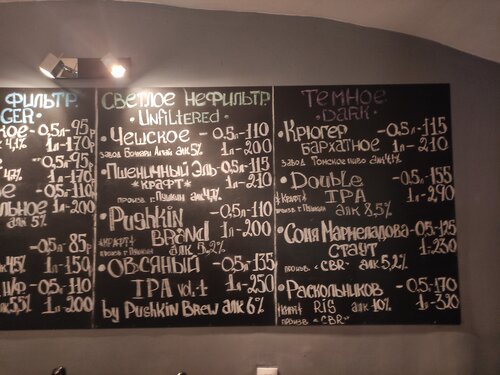 ФИЛЬТР.
GER
КОЕ - 0,5л-95р
4,1% 1л-170р
0,5л-95р
1л-170р
Е - 0,5л-110
ЛЬНОЕ 1л-200
алк 5%
0,5л-85р
алк 4,5% 1л-150р
0,5л-110
1л-200
СВЕТЛОЕ НЕФИЛЬТР.
• Unfiltered •
• ЧЕШСКОЕ - 0,5л-110
завод Бочкари Алтай алк 5% 1л-200
• ПШЕНИЧНЫЙ ЭЛЬ - 0,5л-115
*КРАФТ* 1л-210
произв. г. Пушкин алк 4,7%
• Pushkin - 0,5л-110
*КРАФТ* Brand 1л-200
произв г. Пушкин алк 5,2%
• ОВСЯНЫЙ - 0,5л-135
IPA vol.1 1л-250
by Pushkin Brew алк 6%
ТЕМНОЕ
• DARK •
• КРЮГЕР - 0,5л-115
БАРХАТНОЕ 1л-210
завод Томское пиво
• DOUBLE - 0,5л-155
*КРАФТ* IPA 1л-290
произв г. Пушкин алк 8,5%
• СОНЯ МАРМЕЛАДОВА - 0,5-125
СТАУТ 1л-230
произв. "CBR" алк 5,2%
• РАСКОЛЬНИКОВ - 0,5л-170
*КРАФТ* RIS алк 10% 1л-320
произв "CBR"